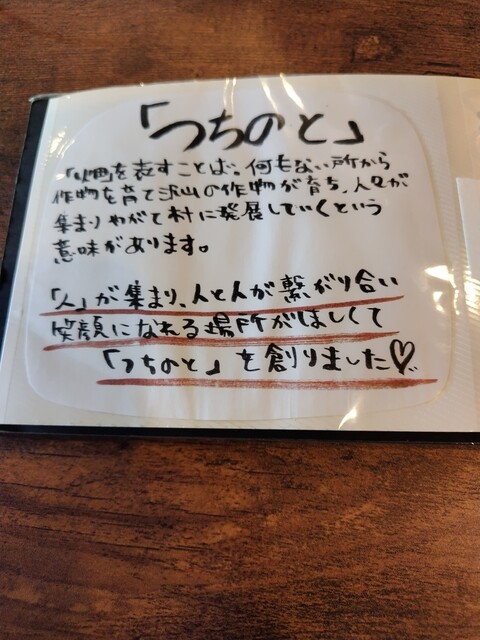 「つちのと」
「畑」を表すことば。何もない所から
作物を育て沢山の作物が育ち、人々が
集まりやがて村に発展していくという
意味があります。
「人」が集まり、人と人が繋がり合い
笑顔になれる場所がほしくて
「つちのと」を創りました♡